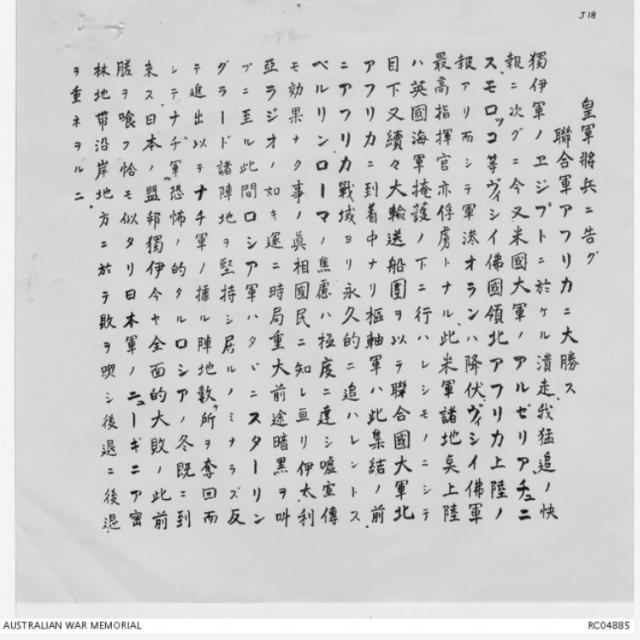 J18
皇軍將兵ニ告グ
聯合軍アフリカニ大勝ス
獨伊軍ノヱジプトニ於ケル潰走、我猛追ノ快
報ニ次グニ今又米國大軍ノアルゼリア、チュニ
ス、モロッコ等ヴィシイ佛國領北アフリカ上陸ノ
報アリ而シテ軍港オランハ降伏、ヴィシイ佛軍
最高指揮官亦俘虜トナル、此米軍諸地奌上陸
ハ英國海軍掩護ノ下ニ行ハレシモノニシテ
目下又續々大輪送船團ヲ以テ聯合國大軍北
アフリカニ到着中ナリ樞軸軍ハ此集結ノ前
ニアフリカ戰域ヨリ永久的ニ追ハレントス.
ベルリン、ローマノ焦慮ハ極度ニ達シ嘘宣傳
モ効果ナク事ノ眞相國民ニ知レ亘リ伊太利
亜ラジオノ如キ遂ニ時局重大前途暗黒ヲ叫
ブニ至ル此間ロシア軍ハニスターリン
グラード諸陣地ヲ堅持シ居ルノミナラズ反
テ進出以テナチ軍ノ據ル陣地數ヶ所ヲ奪回而
シテナチ軍恐怖ノ的タルロシアノ冬既ニ到
来ス、日本ノ盟邦獨伊今ヤ全面的大敗ノ此前
勝ヲ喰フ恰モ似タリ日本軍ノニューギニア密
林地帯沿岸地方ニ於テ敗ヲ喫シ後退ニ後退
ヲ重ネヲルニ.
AUSTRALIAN WAR MEMORIAL
RC04885